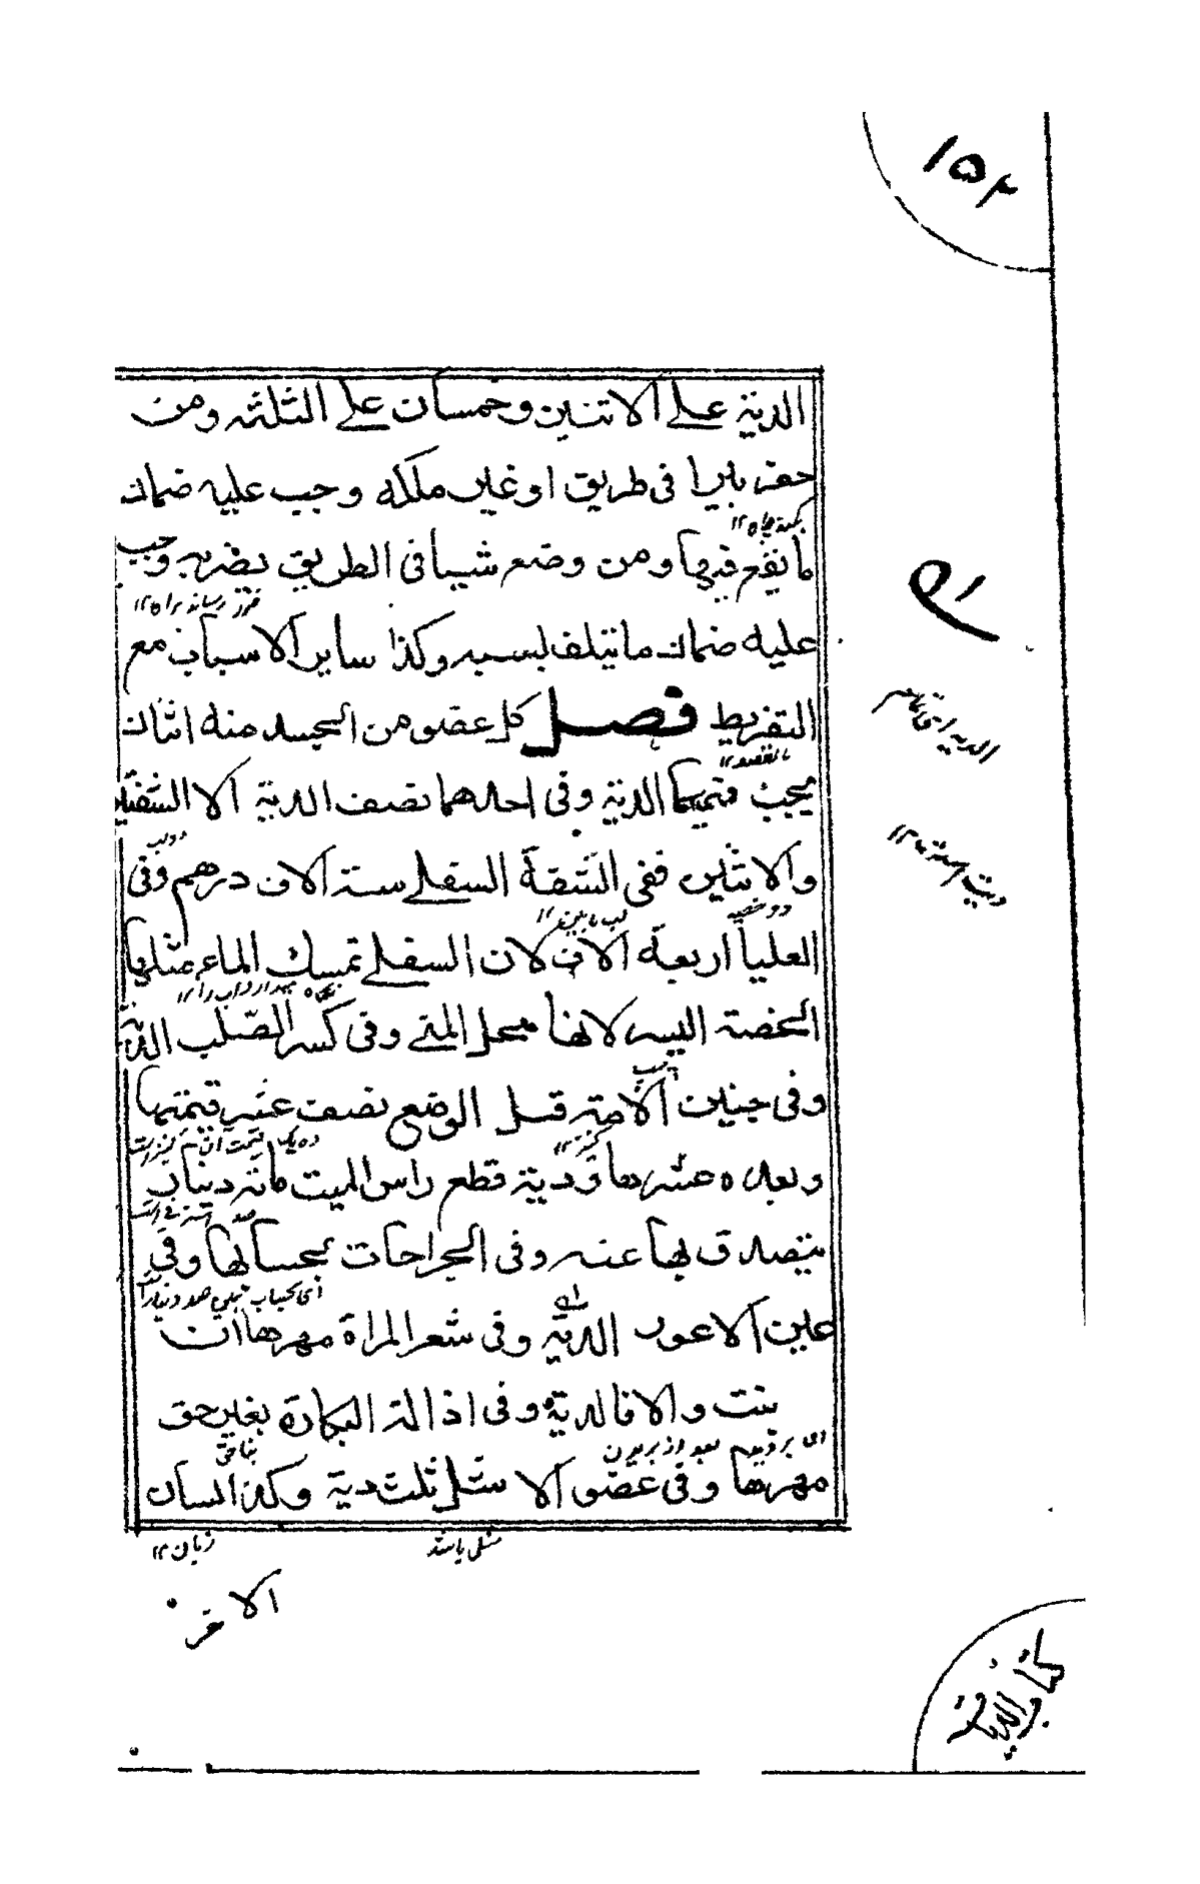 ١٥٢
الدية على الاثنين وخمسان على الثلثه ومن
حفر بيرا فى طريق او غير ملكه وجب عليه ضمان
ما يقع فيها ومن وضع شيا فى الطريق يضر به وجب
ضرر رساند براه ١٢
عليه ضمان ما يتلف بسببه وكذا ساير الاسباب مع
التفريط فصل كل عضو من الجسد منه اثنان
يجب فيهما الدية وفى احدهما نصف الدية الا الشفتين
والانثيين ففى الشفة السفلى ستة آلاف درهم وفى
العليا اربعة آلاف لان السفلى تمسك الماء مثلها
الخصية اليسر لانها محل المنى وفى كسر الصلب الدية
وفى جنين الامة قبل الوضع نصف عشر قيمتها
وبعده عشرها ودية قطع راس الميت مائة دينار
يتصدق بها عنه وفى الجراحات بحسابها وفى
عين الاعور الدية وفى شعر المراة مهرها ان
نبت والا فالدية وفى اذالة البكارة بغير حق
مهرها وفى عضو الاشل ثلث دية وكذا لسان
شلى باشد
زبان ١٢
الاخر
كتاب الديات